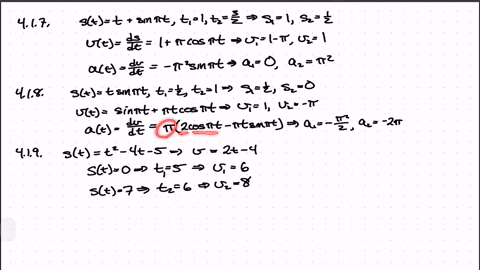 4.1.7. s(t)=t+sinπt, t₁=1, t₂=3/2 ⇒ s₁=1, s₂=1/2
v(t)=ds/dt=1+πcosπt ⇒ v₁=1-π, v₂=1
a(t)=dv/dt=-π²sinπt ⇒ a₁=0, a₂=π²
4.1.8. s(t)=tsinπt, t₁=1/2, t₂=1 ⇒ s₁=1/2, s₂=0
v(t)=sinπt+πtcosπt ⇒ v₁=1, v₂=-π
a(t)=dv/dt=π(2cosπt-πtsinπt) ⇒ a₁=-π²/2, a₂=-2π
4.1.9. s(t)=t²-4t-5 ⇒ v=2t-4
s(t)=0 ⇒ t₁=5 ⇒ v₁=6
s(t)=7 ⇒ t₂=6 ⇒ v₂=8